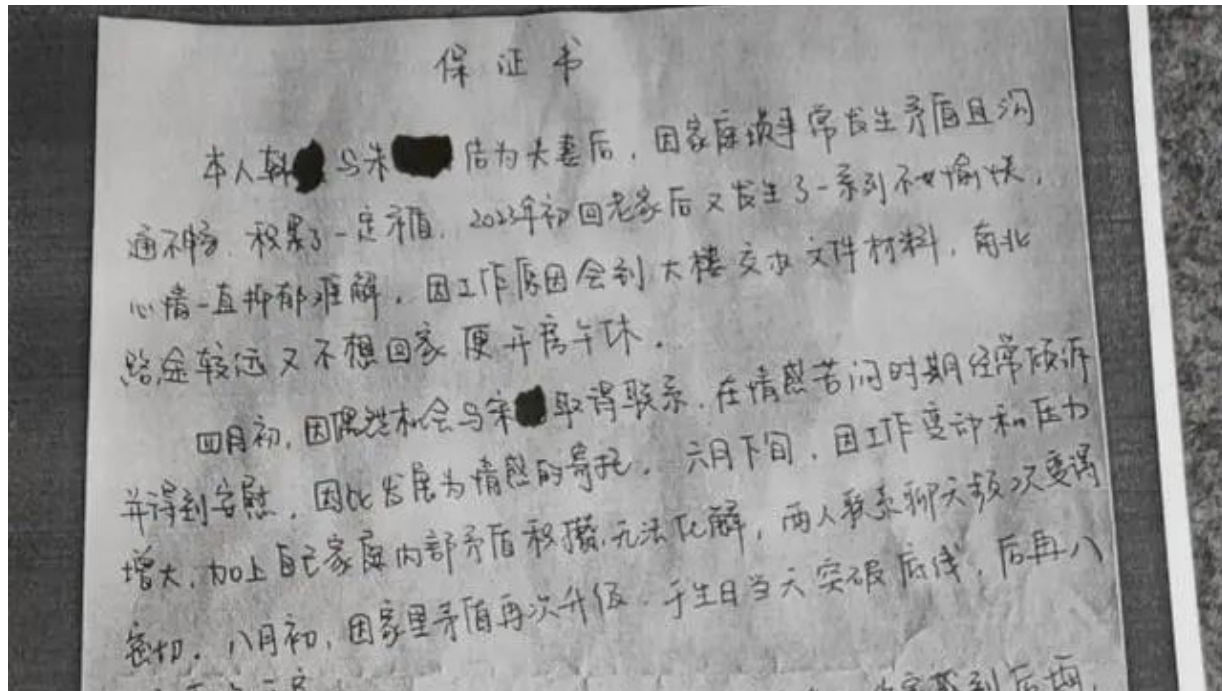 保证书
本人韩 与朱 结为夫妻后，因家庭琐事常发生矛盾且沟
通不畅，积累了一定矛盾，2023年初回老家后又发生了一系列不愉快，
心情一直抑郁难解，因工作原因会到大楼交办文件材料，南北
路途较远又不想回家便开房午休。
四月初，因偶然机会与宋 取得联系，在情感苦闷时期经常倾诉
并得到安慰，因此发展为情感的寄托，六月下旬，因工作变动和压力
增大，加上自己家庭内部矛盾积攒，无法化解，两人联系聊天频次变得
密切，八月初，因家里矛盾再次升级，于生日当天突破底线，后再八
到后面，